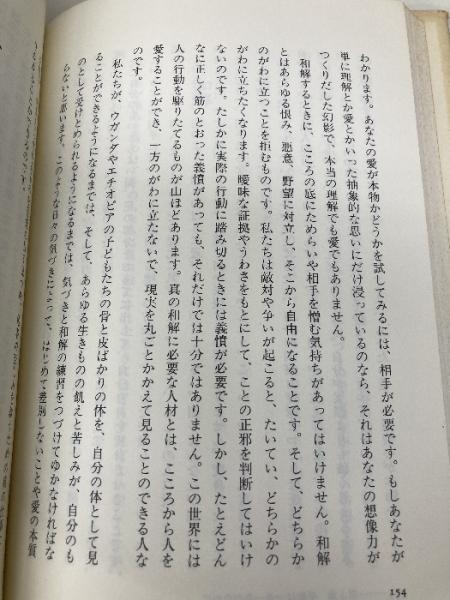 わかります。あなたの愛が本物かどうかを試してみるには、相手が必要です。もしあなたが
単に理解とか愛とかいった抽象的な思いにだけ浸っているのなら、それはあなたの想像力が
つくりだした幻影で、本当の理解でも愛でもありません。
和解するときに、こころの底にためらいや相手を憎む気持ちがあってはいけません。和解
とはあらゆる恨み、悪意、野望に対立し、そこから自由になることです。そして、どちらか
のがわに立つことを拒むものです。私たちは敵対や争いが起こると、たいてい、どちらかの
がわに立ちたくなります。曖昧な証拠やうわさをもとにして、ことの正邪を判断してはいけ
ないのです。たしかに実際の行動に踏み切るときには義憤が必要です。しかし、たとえどん
なに正しく筋のとおった義憤があっても、それだけでは十分ではありません。この世界には
人の行動を駆りたてるものが山ほどあります。真の和解に必要な人材とは、こころから人を
愛することができ、一方のがわに立たないで、現実を丸ごとかかえて見ることのできる人な
のです。
私たちが、ウガンダやエチオピアの子どもたちの骨と皮ばかりの体を、自分の体として見
ることができるようになるまでは、そして、あらゆる生きものの飢えと苦しみが、自分のも
のとして受けとめられるようになるまでは、気づきと和解の練習をつづけてゆかなければな
らないと思います。このような日々の気づきによって、はじめて差別しないことや愛の本質
154